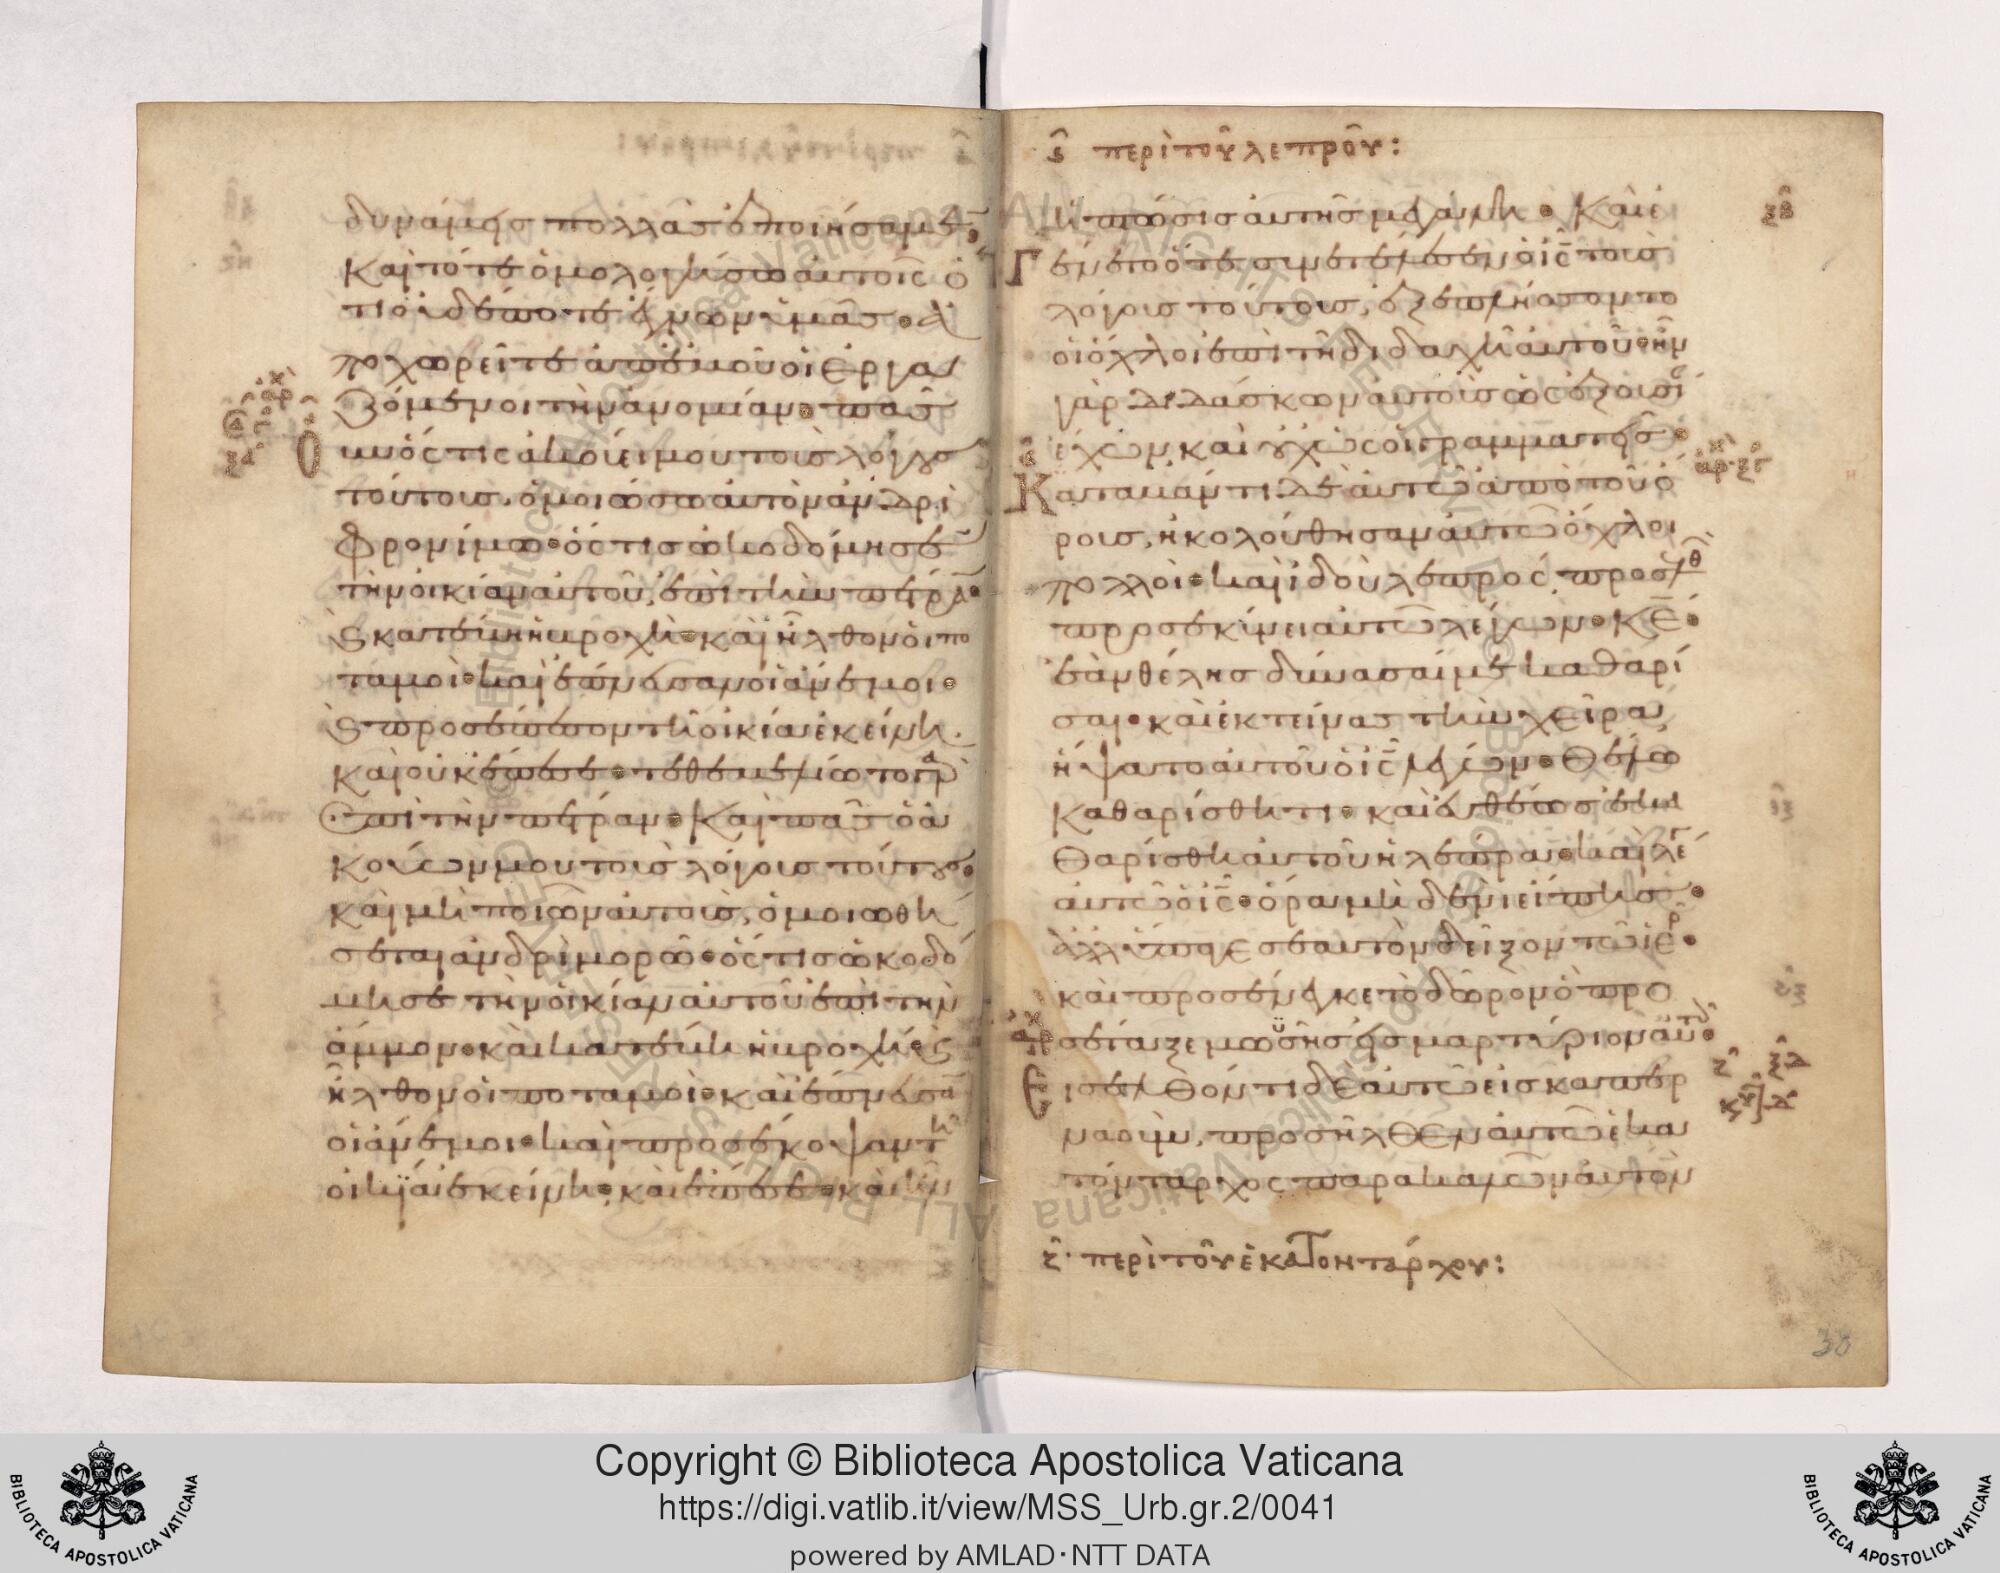 δυνάμεις πολλὰς ἐποιήσαμεν
καὶ τότε ὁμολογήσω αὐτοῖς ὅ
τι οὐδέποτε ἔγνων ὑμᾶς· ἀ
ποχωρεῖτε ἀπ' ἐμοῦ οἱ ἐργα
ζόμενοι τὴν ἀνομίαν· πᾶς
οὖν ὅστις ἀκούει μου τοὺς λόγους
τούτους, ὁμοιώσω αὐτὸν ἀνδρὶ
φρονίμω· ὅστις ὠκοδόμησε
τὴν οἰκίαν αὐτοῦ, ἐπὶ τὴν πέτραν·
ϗ κατέβη ἡ βροχὴ· καὶ ἦλθον οἱ πο
ταμοὶ· καὶ ἔπνευσαν οἱ ἄνεμοι·
ϗ προσέπεσον τῆ οἰκία ἐκείνη.
καὶ οὐκ ἔπεσε· τεθεμελίωτο γὰρ
ἐπὶ τὴν πέτραν· Καὶ πᾶς ὁ ἀ
κούων μου τοὺς λόγους τούτους·
καὶ μὴ ποιῶν αὐτοὺς, ὁμοιωθή
σεται ἀνδρὶ μωρῶ· ὅστις ὠκοδό
μησε τὴν οἰκίαν αὐτοῦ ἐπὶ τὴν
ἄμμον· καὶ κατέβη ἡ βροχή· ϗ
ἦλθον οἱ ποταμοὶ· καὶ ἔπνευσαν
οἱ ἄνεμοι· καὶ προσέκοψαν τῆ
οἰκία ἐκείνη· καὶ ἔπεσε· καὶ ἦν
ϛ περὶ τοῦ λεπροῦ:
ἡ πτῶσις αὐτῆς μεγάλη· Καὶ ἐ
γένετο ὅτε συνετέλεσεν ὁ ις τοὺς
λόγους τούτους, ἐξεπλήσσοντο
οἱ ὄχλοι ἐπὶ τῆ διδαχῆ αὐτοῦ· ἦν
γὰρ διδάσκων αὐτοὺς ὡς ἐξουσίαν
ἔχων, καὶ οὐχ ὡς οἱ γραμματεῖς·
Καταβάντι δὲ αὐτῶ ἀπὸ τοῦ ὄ
ρους, ἠκολούθησαν αὐτῶ ὄχλοι
πολλοὶ· καὶ ἰδοὺ λεπρὸς, προσελθὼν
προσεκύνει αὐτῶ λέγων· κε·
ἐὰν θέλης δύνασαί με καθαρί
σαι· καὶ ἐκτείνας τὴν χεῖρα,
ἥψατο αὐτοῦ ὁ ις λέγων· Θέλω
καθαρίσθητι· καὶ εὐθέως ἐκα
θαρίσθη αὐτοῦ ἡ λέπρα· καὶ λέγει
αὐτῶ ὁ ις· ὅρα μὴ δενὶ εἴπης·
ἀλλ' ὕπαγε σεαυτὸν δεῖξον τῶ ἱερεῖ·
καὶ προσένεγκε τὸ δῶρον ὃ προ
σέταξε μωϋσῆς εἰς μαρτύριον αὐτοῖς·
Εἰσελθόντι δὲ αὐτῶ εἰς καπερ
ναοὺμ, προσῆλθεν αὐτῶ ἑκα
τόνταρχος παρακαλῶν αὐτὸν
ζ· περὶ τοῦ ἑκατοντάρχου:
38
Copyright © Biblioteca Apostolica Vaticana
https://digi.vatlib.it/view/MSS_Urb.gr.2/0041
powered by AMLAD·NTT DATA
BIBLIOTECA APOSTOLICA VATICANA
BIBLIOTECA APOSTOLICA VATICANA